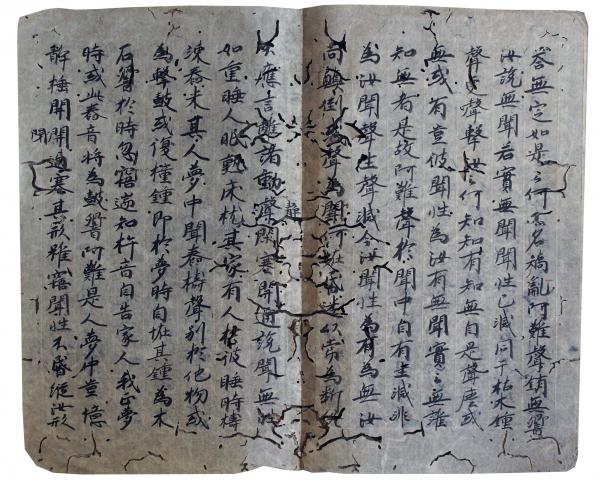 答無定如是〻何不名禍亂阿難聲銷無響
汝說無聞若實無聞聞性已滅同于枯木鍾
聲更聲擊汝〻何知知有知無自是聲塵或
無或有豈彼聞性為汝有無聞實〻無誰
知無者是故阿難聲於聞中自有生滅非
為汝聞聲生聲滅令汝聞性為有為無汝
尚顛倒聲為聞何昏迷以常為斷
不應言離諸動靜閉塞開通說聞無性
如重睡人眠熟床枕其家有人於彼睡時檮
練舂米其人夢中聞舂檮聲別於他物或
為擊鼓或復橦鍾即於夢時自怪其鍾為木
石響於時忽寤遄知杵音自告家人我正夢
時或此舂音將為鼓響阿難是人夢中豈憶
靜搖開閉通塞其形雖寤聞性不昏縱汝形